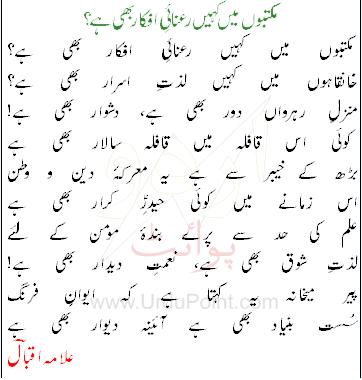 مکتبوں میں کہیں رعنائیِ افکار بھی ہے؟
مکتبوں میں کہیں رعنائیِ افکار بھی ہے؟
خانقاہوں میں کہیں لذتِ اسرار بھی ہے؟
منزلِ رہرواں دور بھی ہے، دشوار بھی ہے!
کوئی اس قافلہ میں قافلہ سالار بھی ہے
بڑھ کے خیبر سے ہے یہ معرکۂ دین و وطن
اس زمانے میں کوئی حیدرؓ کرار بھی ہے
علم کی حد سے پرلے بندۂ مؤمن کے لئے
لذتِ شوق بھی ہے، نعمتِ دیدار بھی ہے!
پیر میخانہ یہ کہتا ہے کہ ایوانِ فرنگ
سُست بنیاد بھی ہے آئینہ دیوار بھی ہے
علامہ اقبالؒ
اُردو پوائنٹ
www.UrduPoint.com